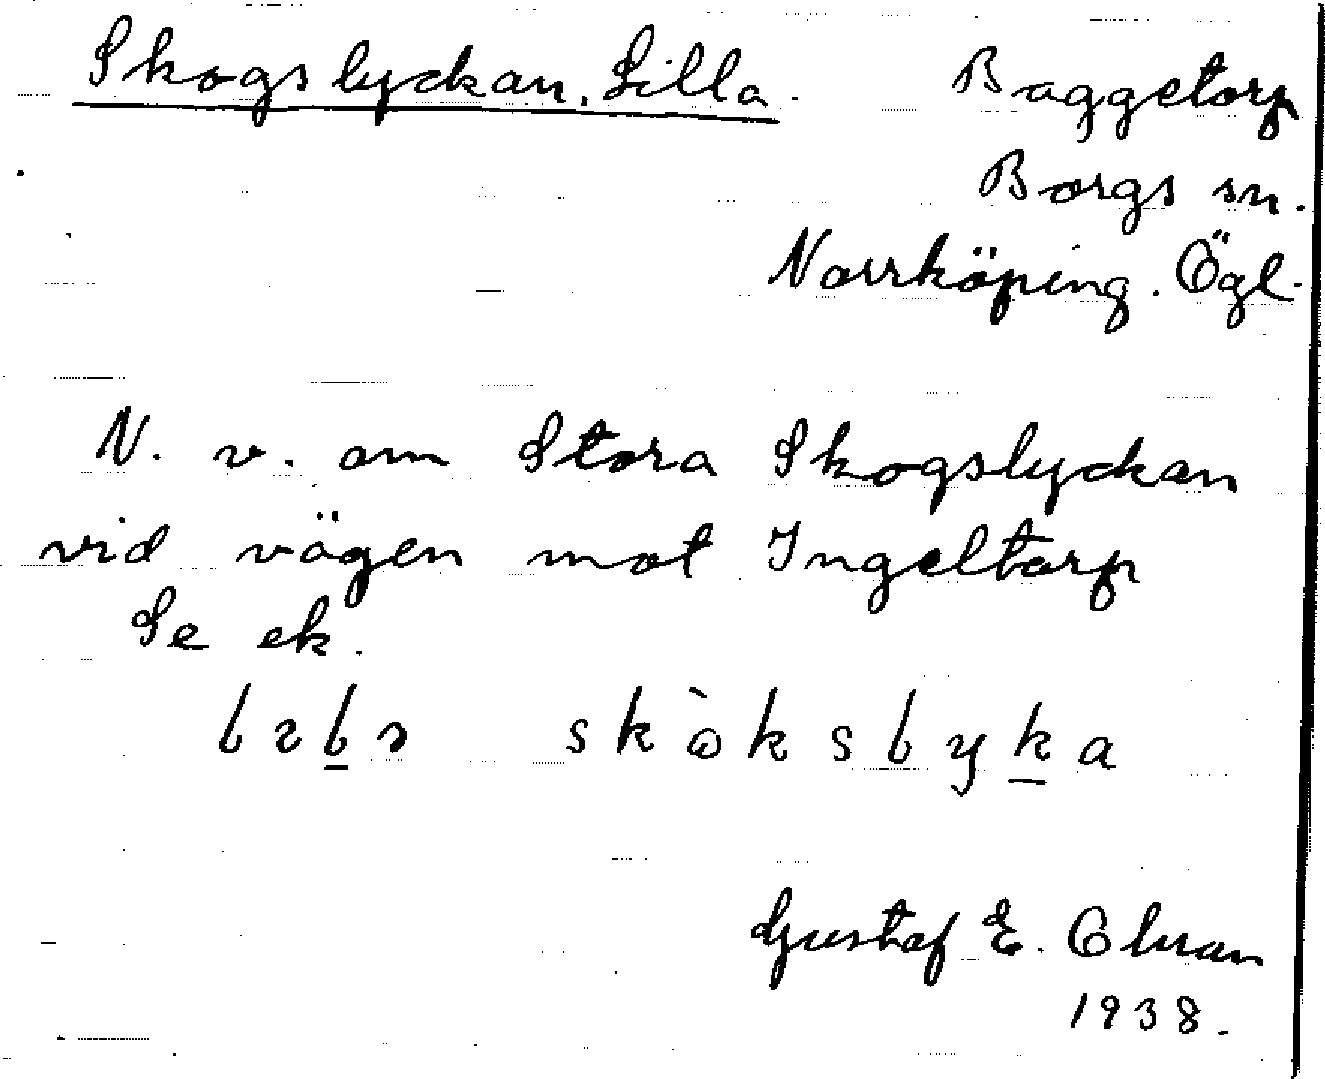 Skogslyckan, Lilla. Baggetorp
Borgs sn.
Norrköping. Ögl.
N. v. om Stora Skogslyckan
vid vägen mot Ingeltorp
Se ek.
skòksɬyka
Gustaf E.
1938.